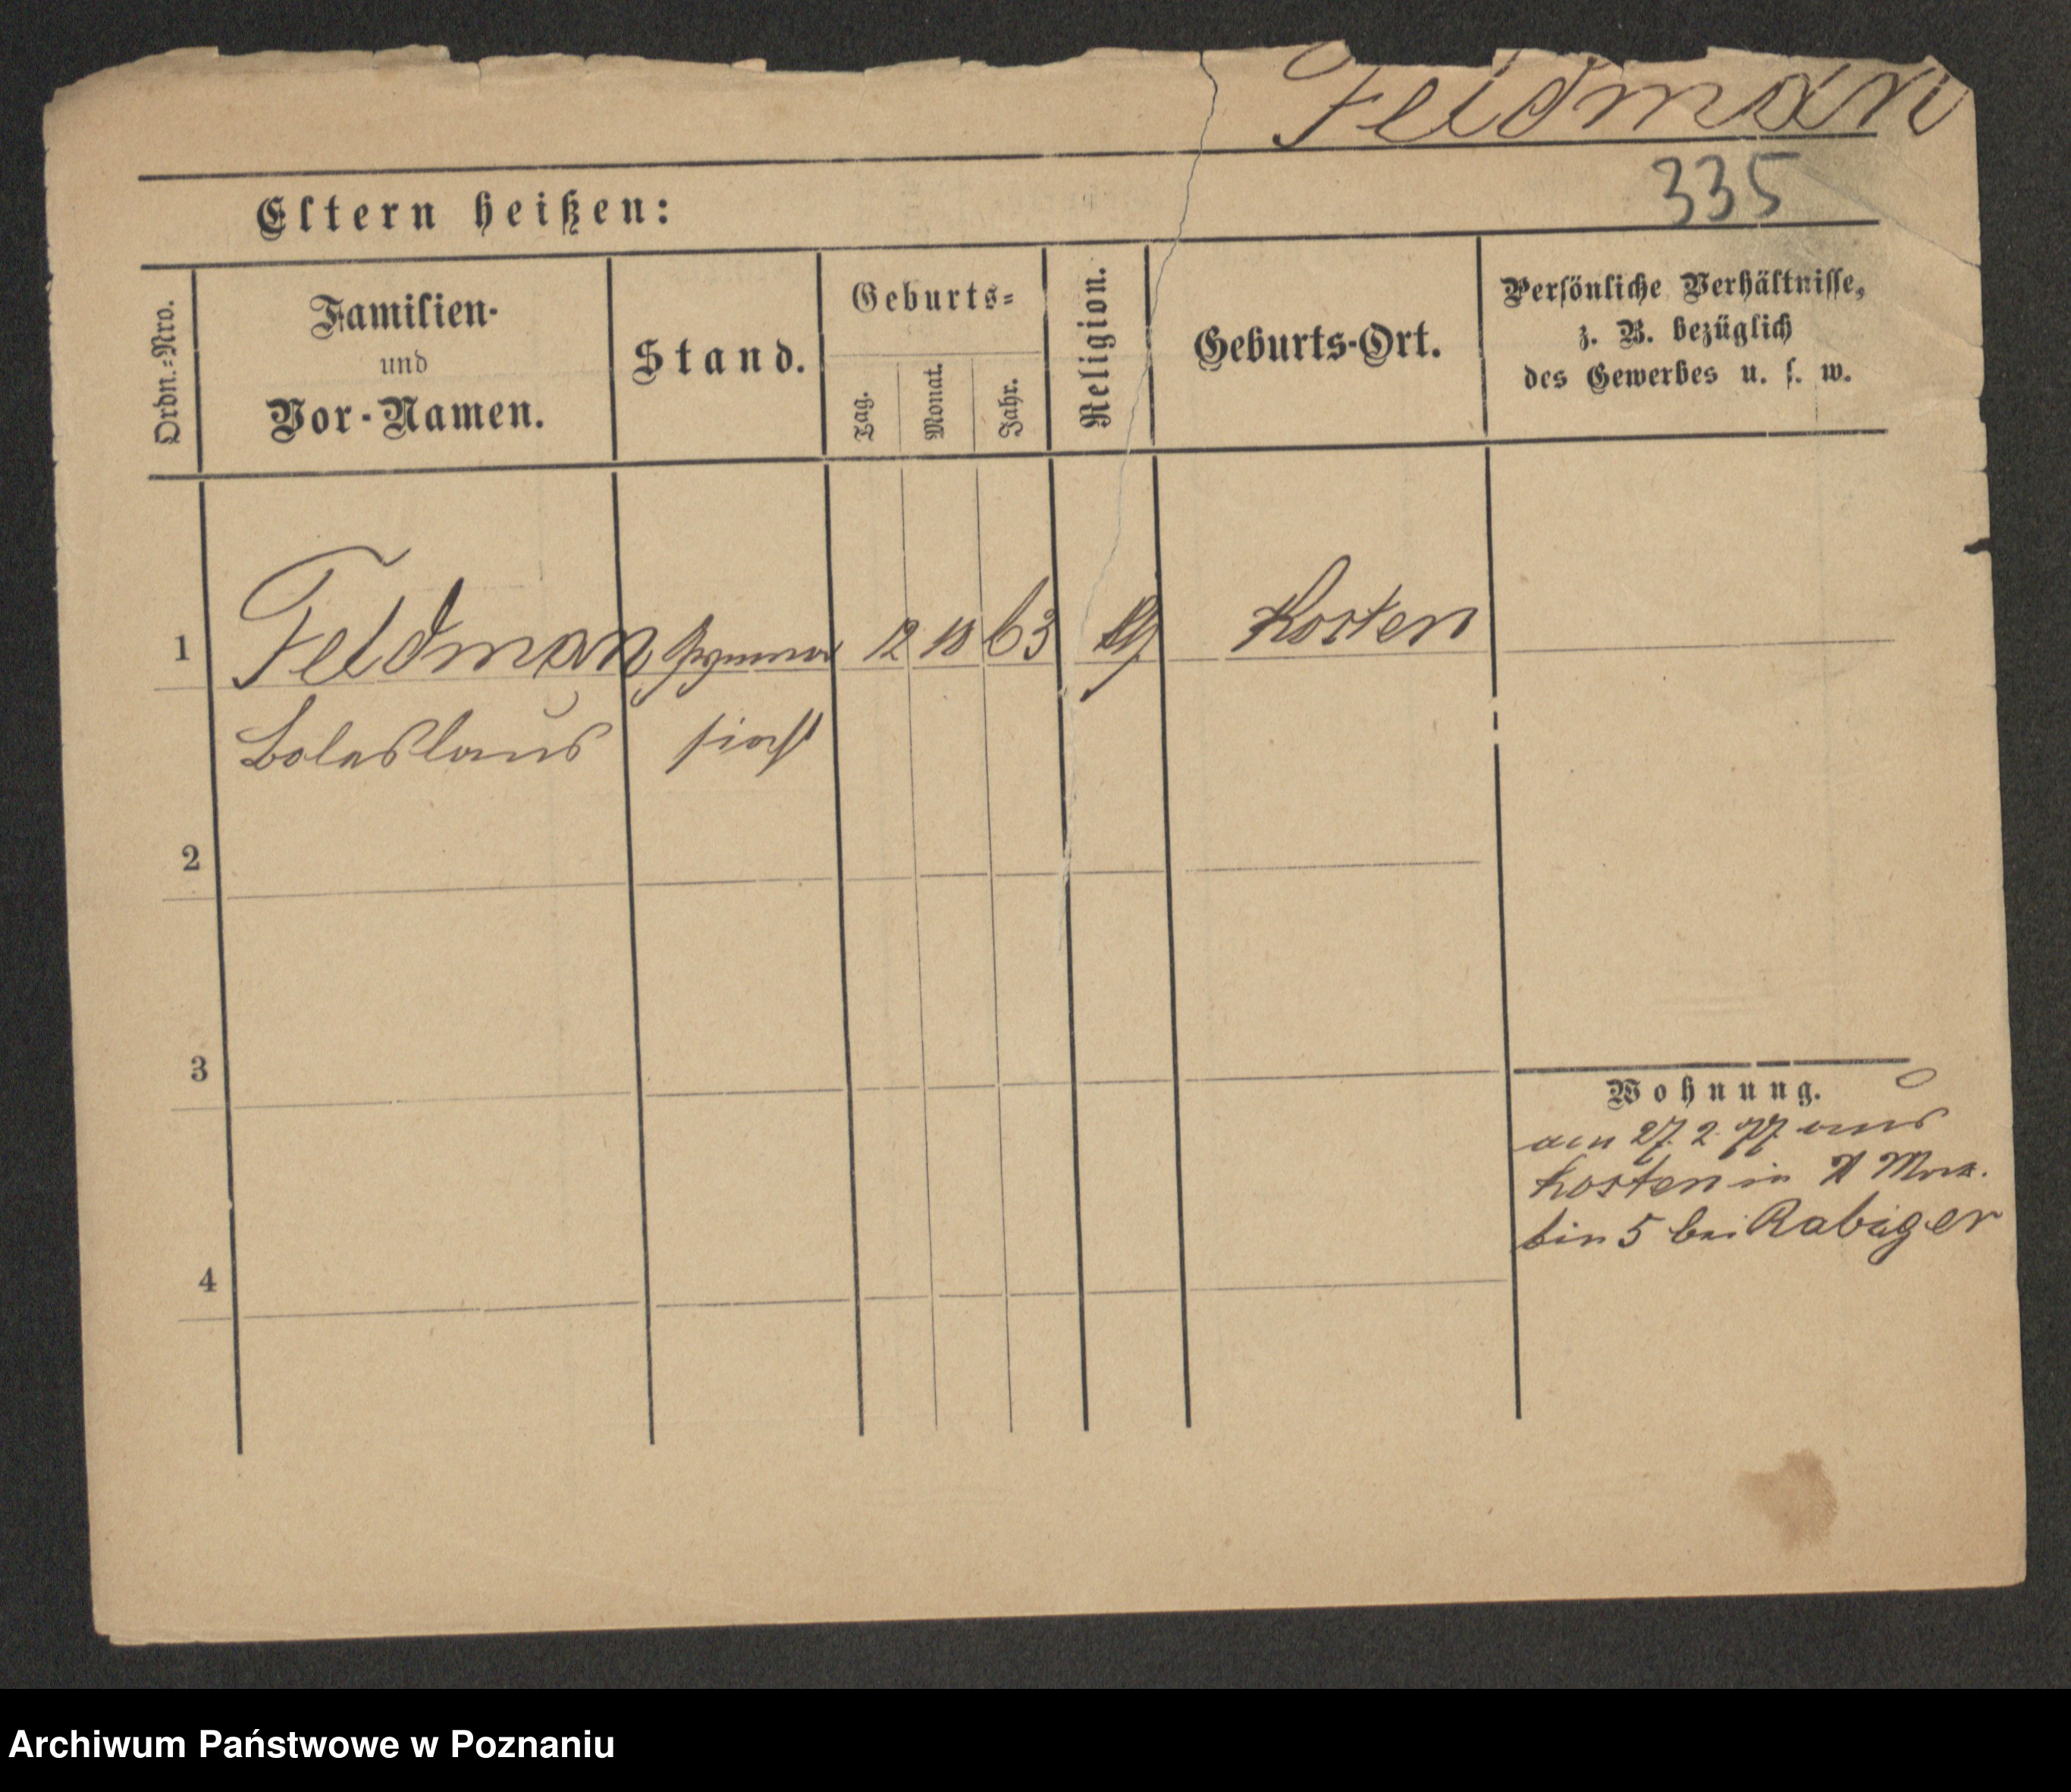 Feldman
335
Eltern heißen:
Ordn.=Nro.
Familien-
und
Vor-Namen.
Stand.
Geburts=
Tag.
Monat.
Jahr.
Religion.
Geburts-Ort.
Persönliche Verhältnisse,
z. B. bezüglich
des Gewerbes u. s. w.
1 Feldman Gymna 12 10 63 Kosten
Boleslaus siast
2
3
Wohnung.
am 27. 2. 77. aus
Kosten in
5 bei Rabiger
4
Archiwum Państwowe w Poznaniu